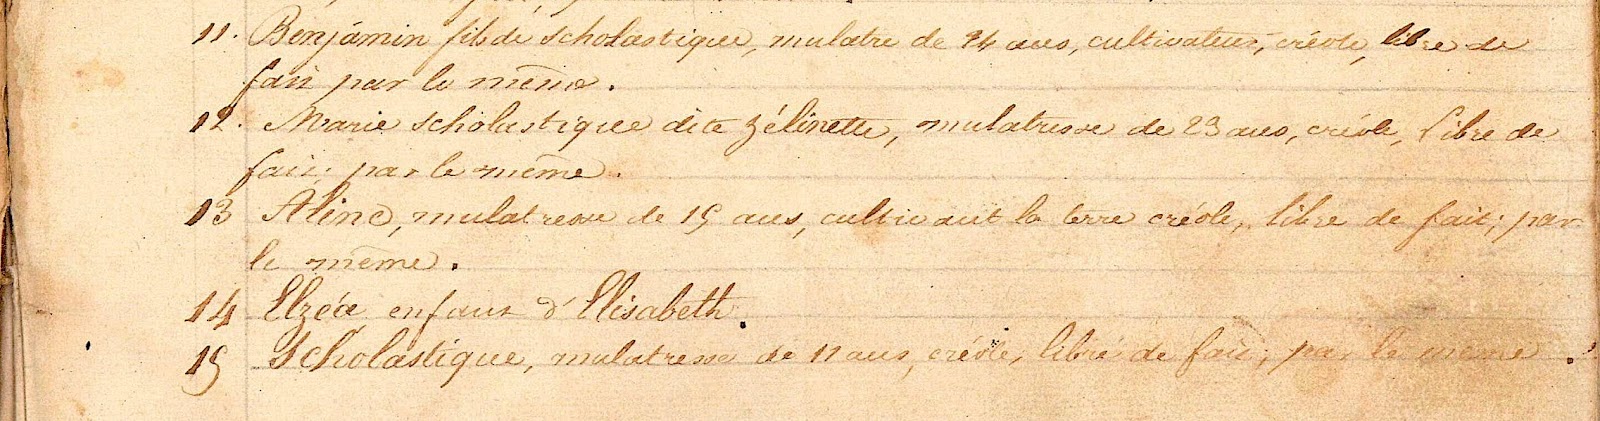 11. Benjamin fils de Scholastique, mulatre de 24 ans, cultivateur, créole, libre de
fait par le même.
12. Marie Scholastique dite Zélinette, mulatresse de 23 ans, créole, libre de
fait; par le même.
13 Aline, mulatresse de 15 ans, cultivant la terre créole, libre de fait; par
le même.
14 Elzée enfant d'Elisabeth.
15 Scholastique, mulatresse de 11 ans, créole, libre de fait, par le même.